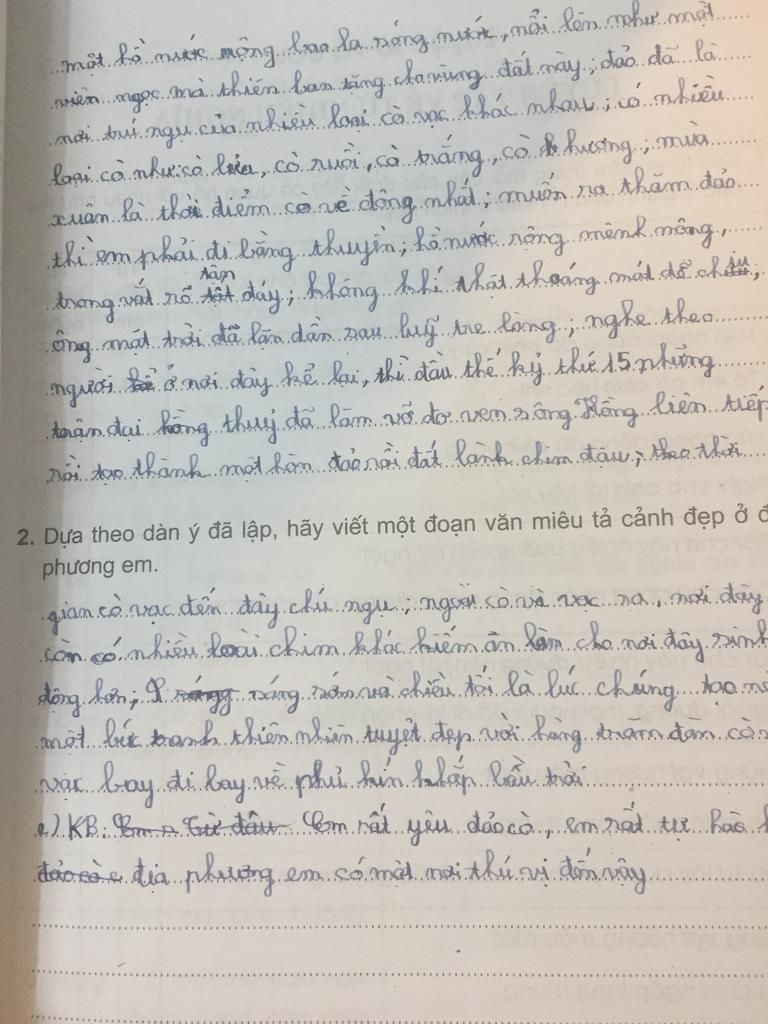 một hồ nước mộng bao la sóng nước, nổi lên như một
viên ngọc mà thiên ban tặng cho vùng đất này; đảo đã là
nơi trú ngụ của nhiều loại cò vạc khác nhau; có nhiều
loại cò như: cò lửa, cò ruồi, cò trắng, cò hương; mùa
xuân là thời điểm cò về đông nhất; muốn ra thăm đảo
thì em phải đi bằng thuyền; hồ nước rộng mênh mông,
trong vắt rõ tận đáy; không khí thật thoáng mát dễ chịu;
ông mặt trời đã lặn dần sau luỹ tre làng; nghe theo
người ở nơi đây kể lại, thì đầu thế kỷ thứ 15 những
trận đại hồng thuỷ đã làm vỡ đơ ven sông Hồng liên tiếp
rồi tạo thành một hòn đảo nổi đất lành chim đậu; theo thời
2. Dựa theo dàn ý đã lập, hãy viết một đoạn văn miêu tả cảnh đẹp ở đ
phương em.
gian cò vạc đến đây chú ngụ; ngoài cò và vạc ra, nơi đây
còn có nhiều loài chim khác kiếm ăn làm cho nơi đây sinh
động hơn; sáng sớm và chiều tối là lúc chúng tạo n
một bức tranh thiên nhiên tuyệt đẹp với hàng trăm đàn cò
vạc bay đi bay về phủ kín khắp bầu trời
c) KB: Em rất yêu đảo cò, em rất tự hào
địa phương em có một nơi thú vị đến vậy